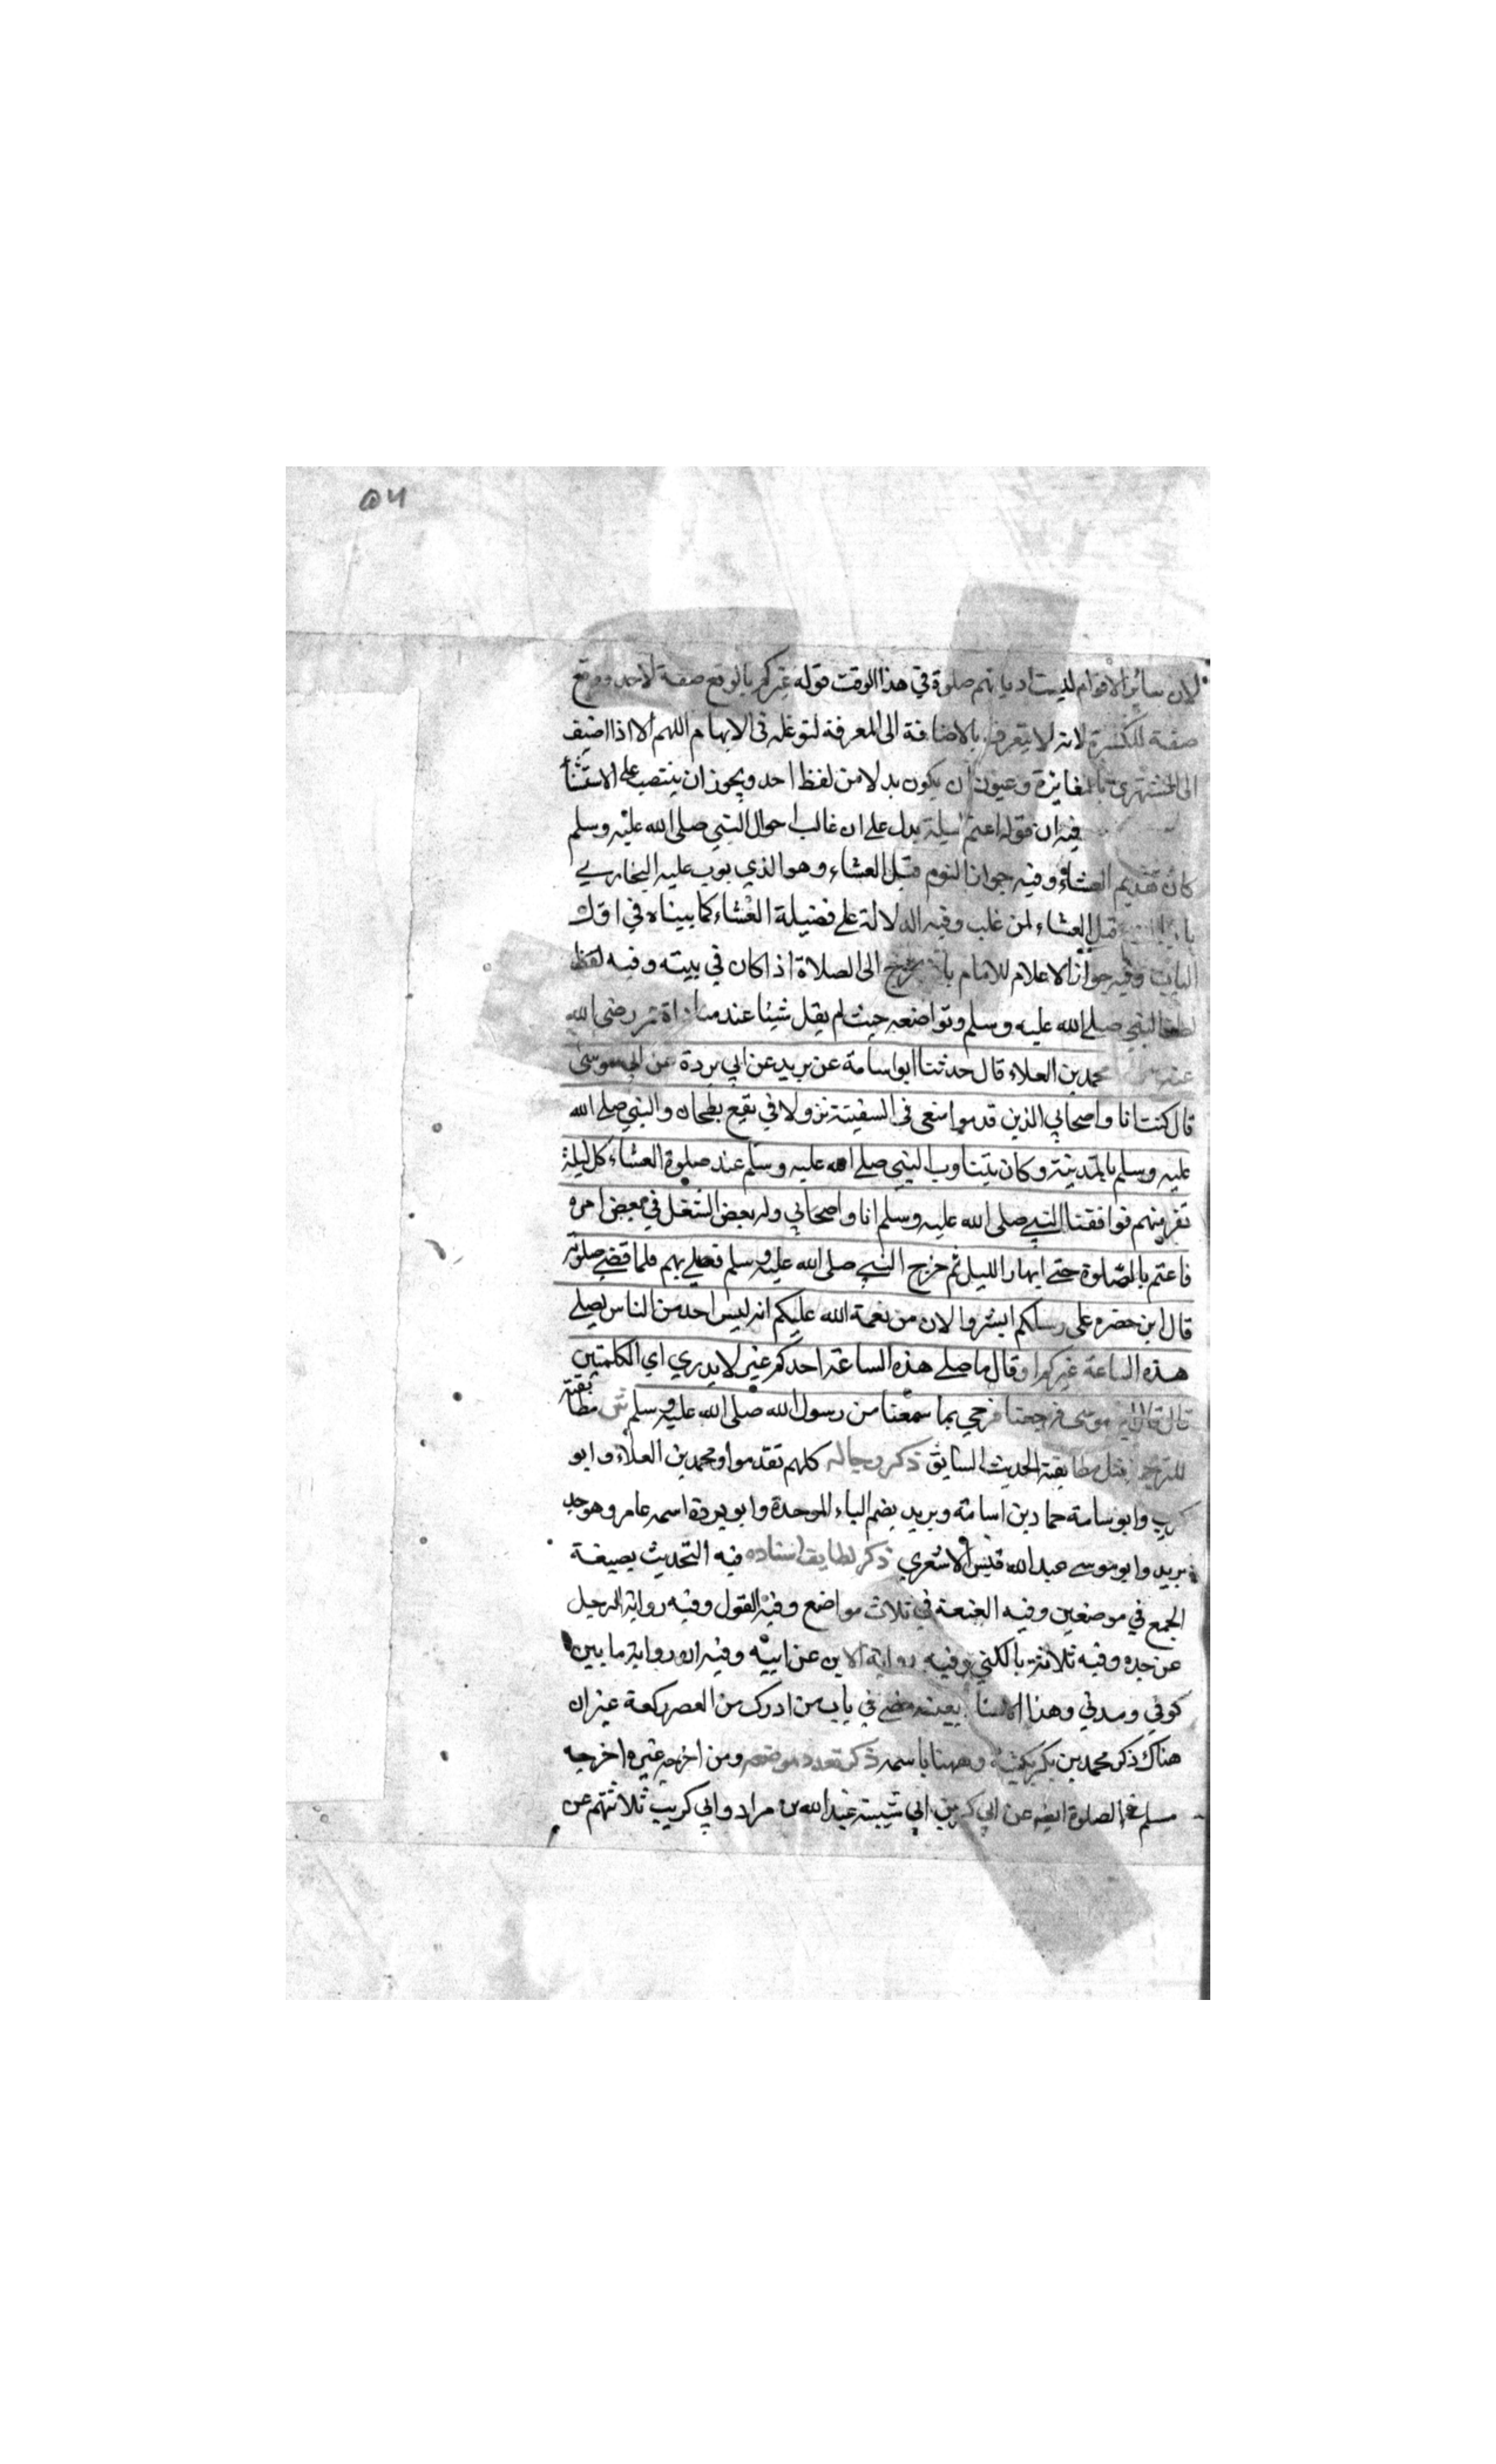 ٥٦
لان سائر الاقوام ليست اديانهم صلوة في هذا الوقت قوله غيركم بالرفع صفة لاحد ووقع
صفة للنكرة لانه لا يتعرف بالاضافة الى المعرفة لتوغله في الابهام اللهم الا اذا اضيف
الى المشتهر بالمغايرة ويجوز ان يكون بدلا من لفظ احد ويجوز ان ينتصب على الاستثنا
فيه ان قوله اعتم ليلة يدل على ان غالب احوال النبي صلى الله عليه وسلم
كان تقديم العشاء وفيه جواز النوم قبل العشاء وهو الذي بوب عليه البخاري
باب قبل العشاء لمن غلب وفيه الدلالة على فضيلة العشاء كما بيناه في اول
الباب وفيه جواز الاعلام للامام بان يخرج الى الصلاة اذا كان في بيته وفيه لفظ
لطف النبي صلى الله عليه وسلم وتواضعه حيث لم يقل شيئا عند رضي الله
عنه محمد بن العلاء قال حدثنا ابو اسامة عن بريد عن ابي بردة عن ابي موسى
قال كنت انا واصحابي الذين قدموا معى في السفينة نزولا في بقيع بطحان والنبي صلى الله
عليه وسلم بالمدينة وكان يتناوب النبي صلى الله عليه وسلم عند صلوة العشاء كل ليلة
نفر منهم فوافقنا النبي صلى الله عليه وسلم انا واصحابي وله بعض الشغل في بعض امره
فاعتم بالصلوة حتى ابهار الليل ثم خرج النبي صلى الله عليه وسلم فصلى بهم فلما قضى صلوته
قال لمن حضره على رسلكم ابشروا لان من نعمة الله عليكم انه ليس احد من الناس يصلى
هذه الساعة غيركم او قال ما صلى هذه الساعة احد كم غير لا يدري اي الكلمتين
قال قال ابو موسى فرجعنا فرحي بما سمعنا من رسول الله صلى الله عليه وسلم ش مطابقته
للترجمة مثل مطابقة الحديث السابق ذكر رجاله كلهم تقدموا ومحمد بن العلاء وابو
كريب وابو سامة حماد بن اسامة وبريد بضم الباء الموحدة وابو بردة اسمه عامر وهو جد
بريد وابو موسى عبد الله قيس الاشعري ذكر لطايف اسناده فيه التحديث بصيغة
الجمع في موضعين وفيه العنعنة في ثلاث مواضع وفيه القول وفيه رواية الرجل
عن جده وفيه ثلاثة بالكنى وفيه رواية الابن عن ابيه وفيه ان رواية ما بين
كوفي ومدني وهذا الاسناد بعينه مضى في باب من ادرك من العصر ركعة غير ان
هناك ذكر محمد بن بكر بكنيته وههنا باسمه ذكر تعدد موضعه ومن اخرجه غيره اخرجه
مسلم في الصلوة ايضا عن ابي بكر بن ابي شيبة عبد الله بن مراد وابي كريب ثلاثتهم عن